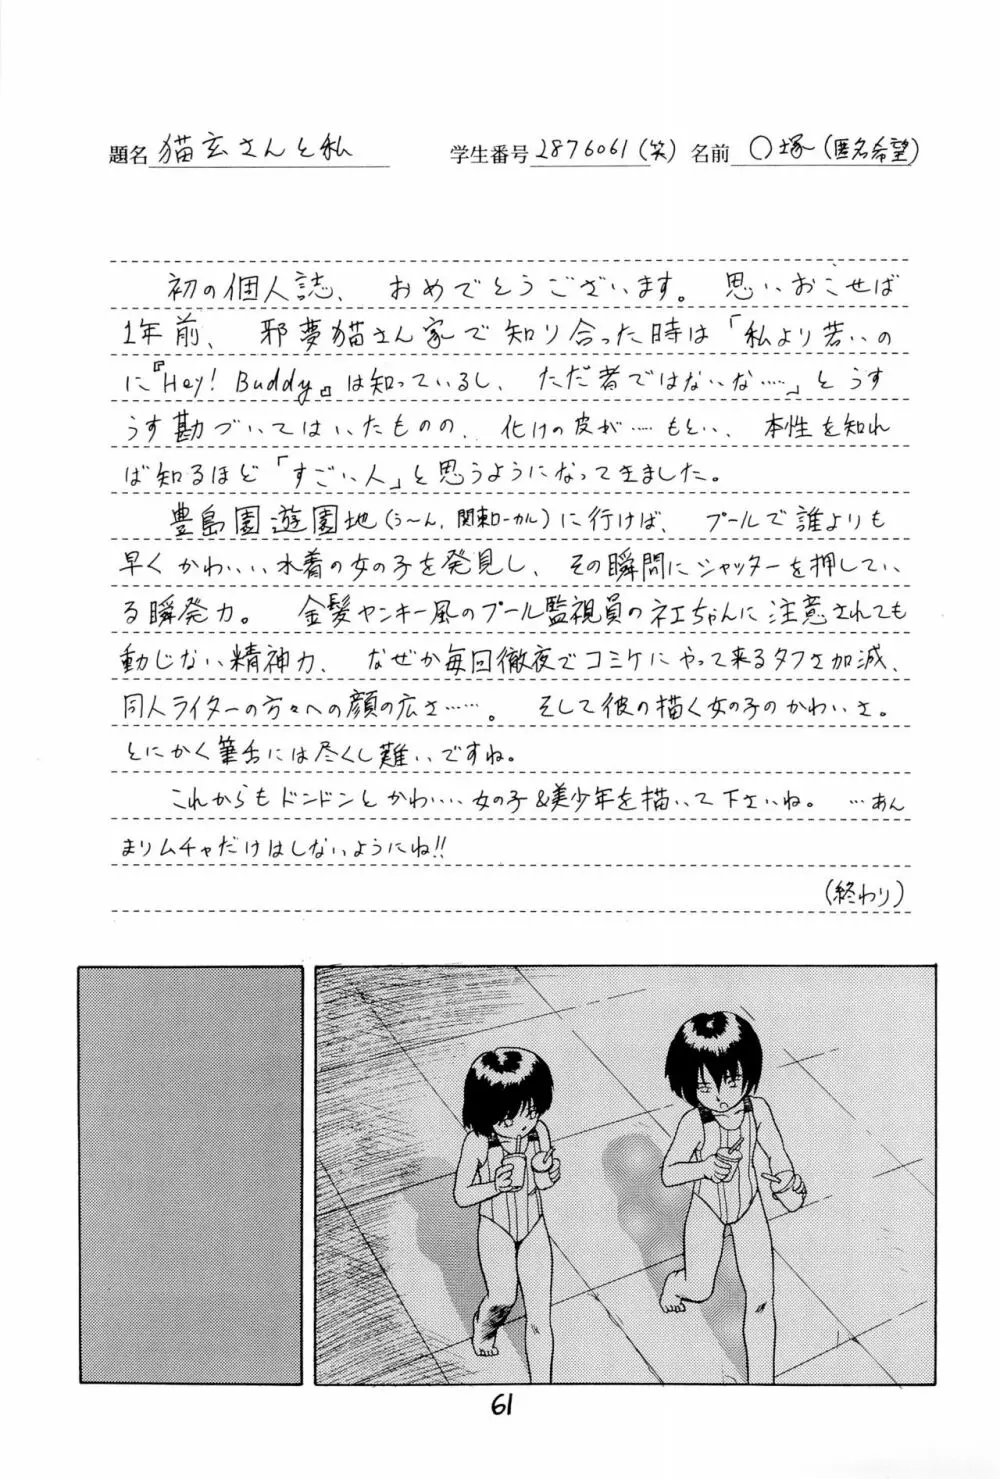 題名 猫玄さんと私 学生番号 2876061(笑) 名前 〇塚(匿名希望)
初の個人誌、おめでとうございます。思いおこせば
1年前、邪夢猫さん家で知り合った時は「私より若いの
に『Hey! Buddy』は知っているし、ただ者ではないな……」とうす
うす勘づいてはいたものの、化けの皮が……もとい、本性を知れ
ば知るほど「すごい人」と思うようになってきました。
豊島園遊園地(う〜ん、関東ローカル)に行けば、プールで誰よりも
早くかわいい水着の女の子を発見し、その瞬間にシャッターを押してい
る瞬発力。金髪ヤンキー風のプール監視員のネエちゃんに注意されても
動じない精神力、なぜか毎回徹夜でコミケにやって来るタフさ加減、
同人ライターの方々への顔の広さ……。そして彼の描く女の子のかわいさ。
とにかく筆舌には尽くし難いですね。
これからもドンドンとかわいい女の子&美少年を描いて下さいね。…あん
まりムチャだけはしないようにね!!
(終わり)
61